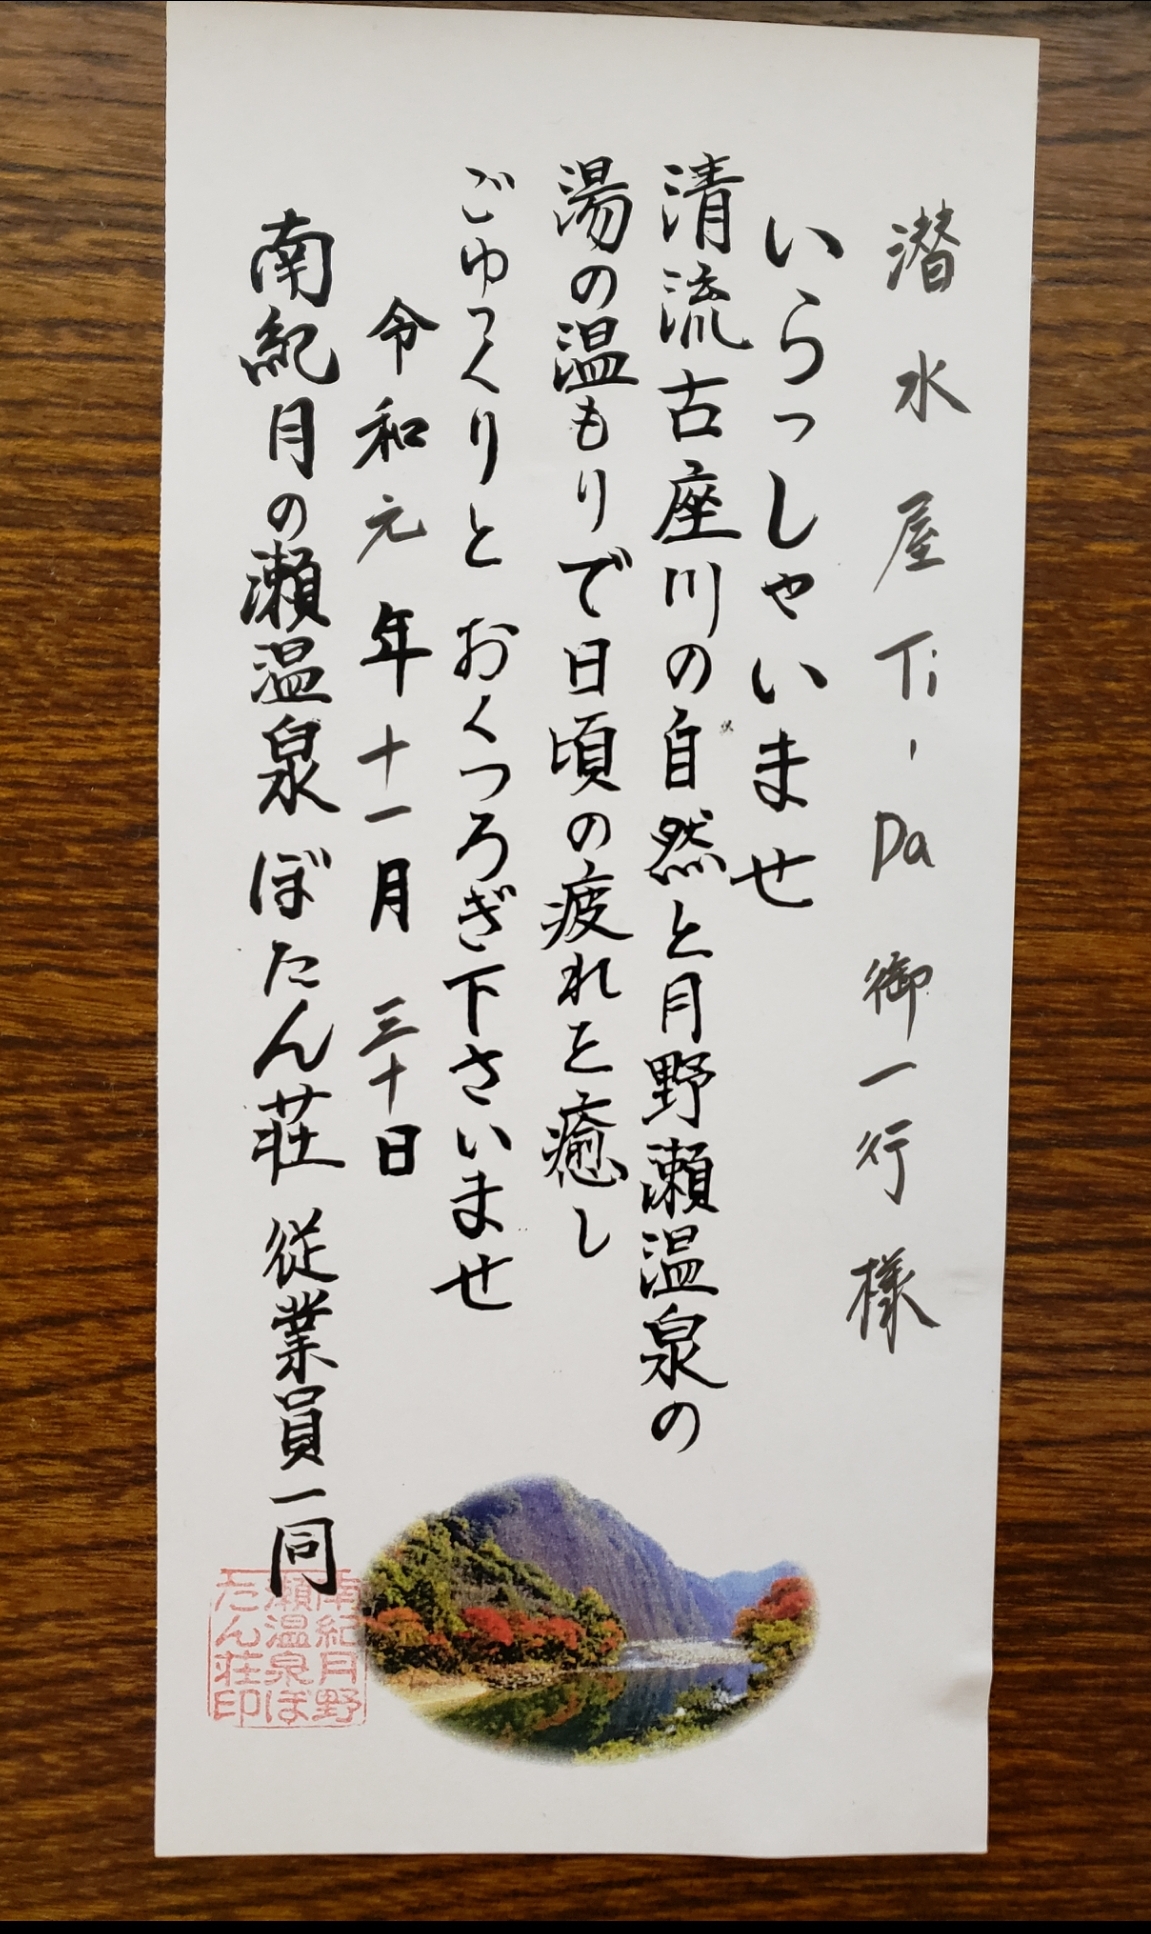 潜水屋Ti-Da御一行様
いらっしゃいませ
清流古座川の自然と月野瀬温泉の
湯の温もりで日頃の疲れを癒し
ごゆっくりと おくつろぎ下さいませ
令和元年十一月三十日
南紀月の瀬温泉 ぼたん荘 従業員一同
南紀月野
瀬温泉ぼ
たん荘印